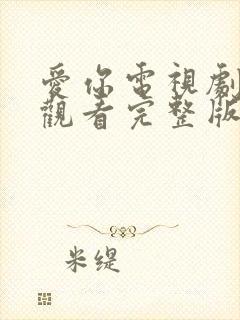 愛你電視劇
觀看完整版
米缇